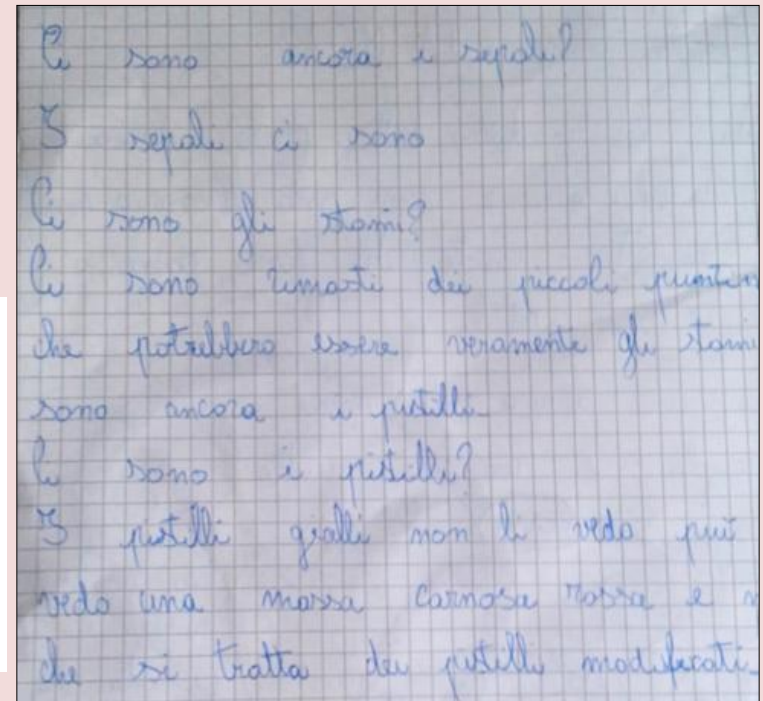 Ci sono ancora i sepali?
I sepali ci sono
Ci sono gli stami?
Ci sono rimasti dei piccoli
che potrebbero essere veramente gli stami
sono ancora i pistilli
Ci sono i pistilli?
I pistilli gialli non li vedo più
vedo una massa carnosa rossa e
che si tratta dei pistilli modificati